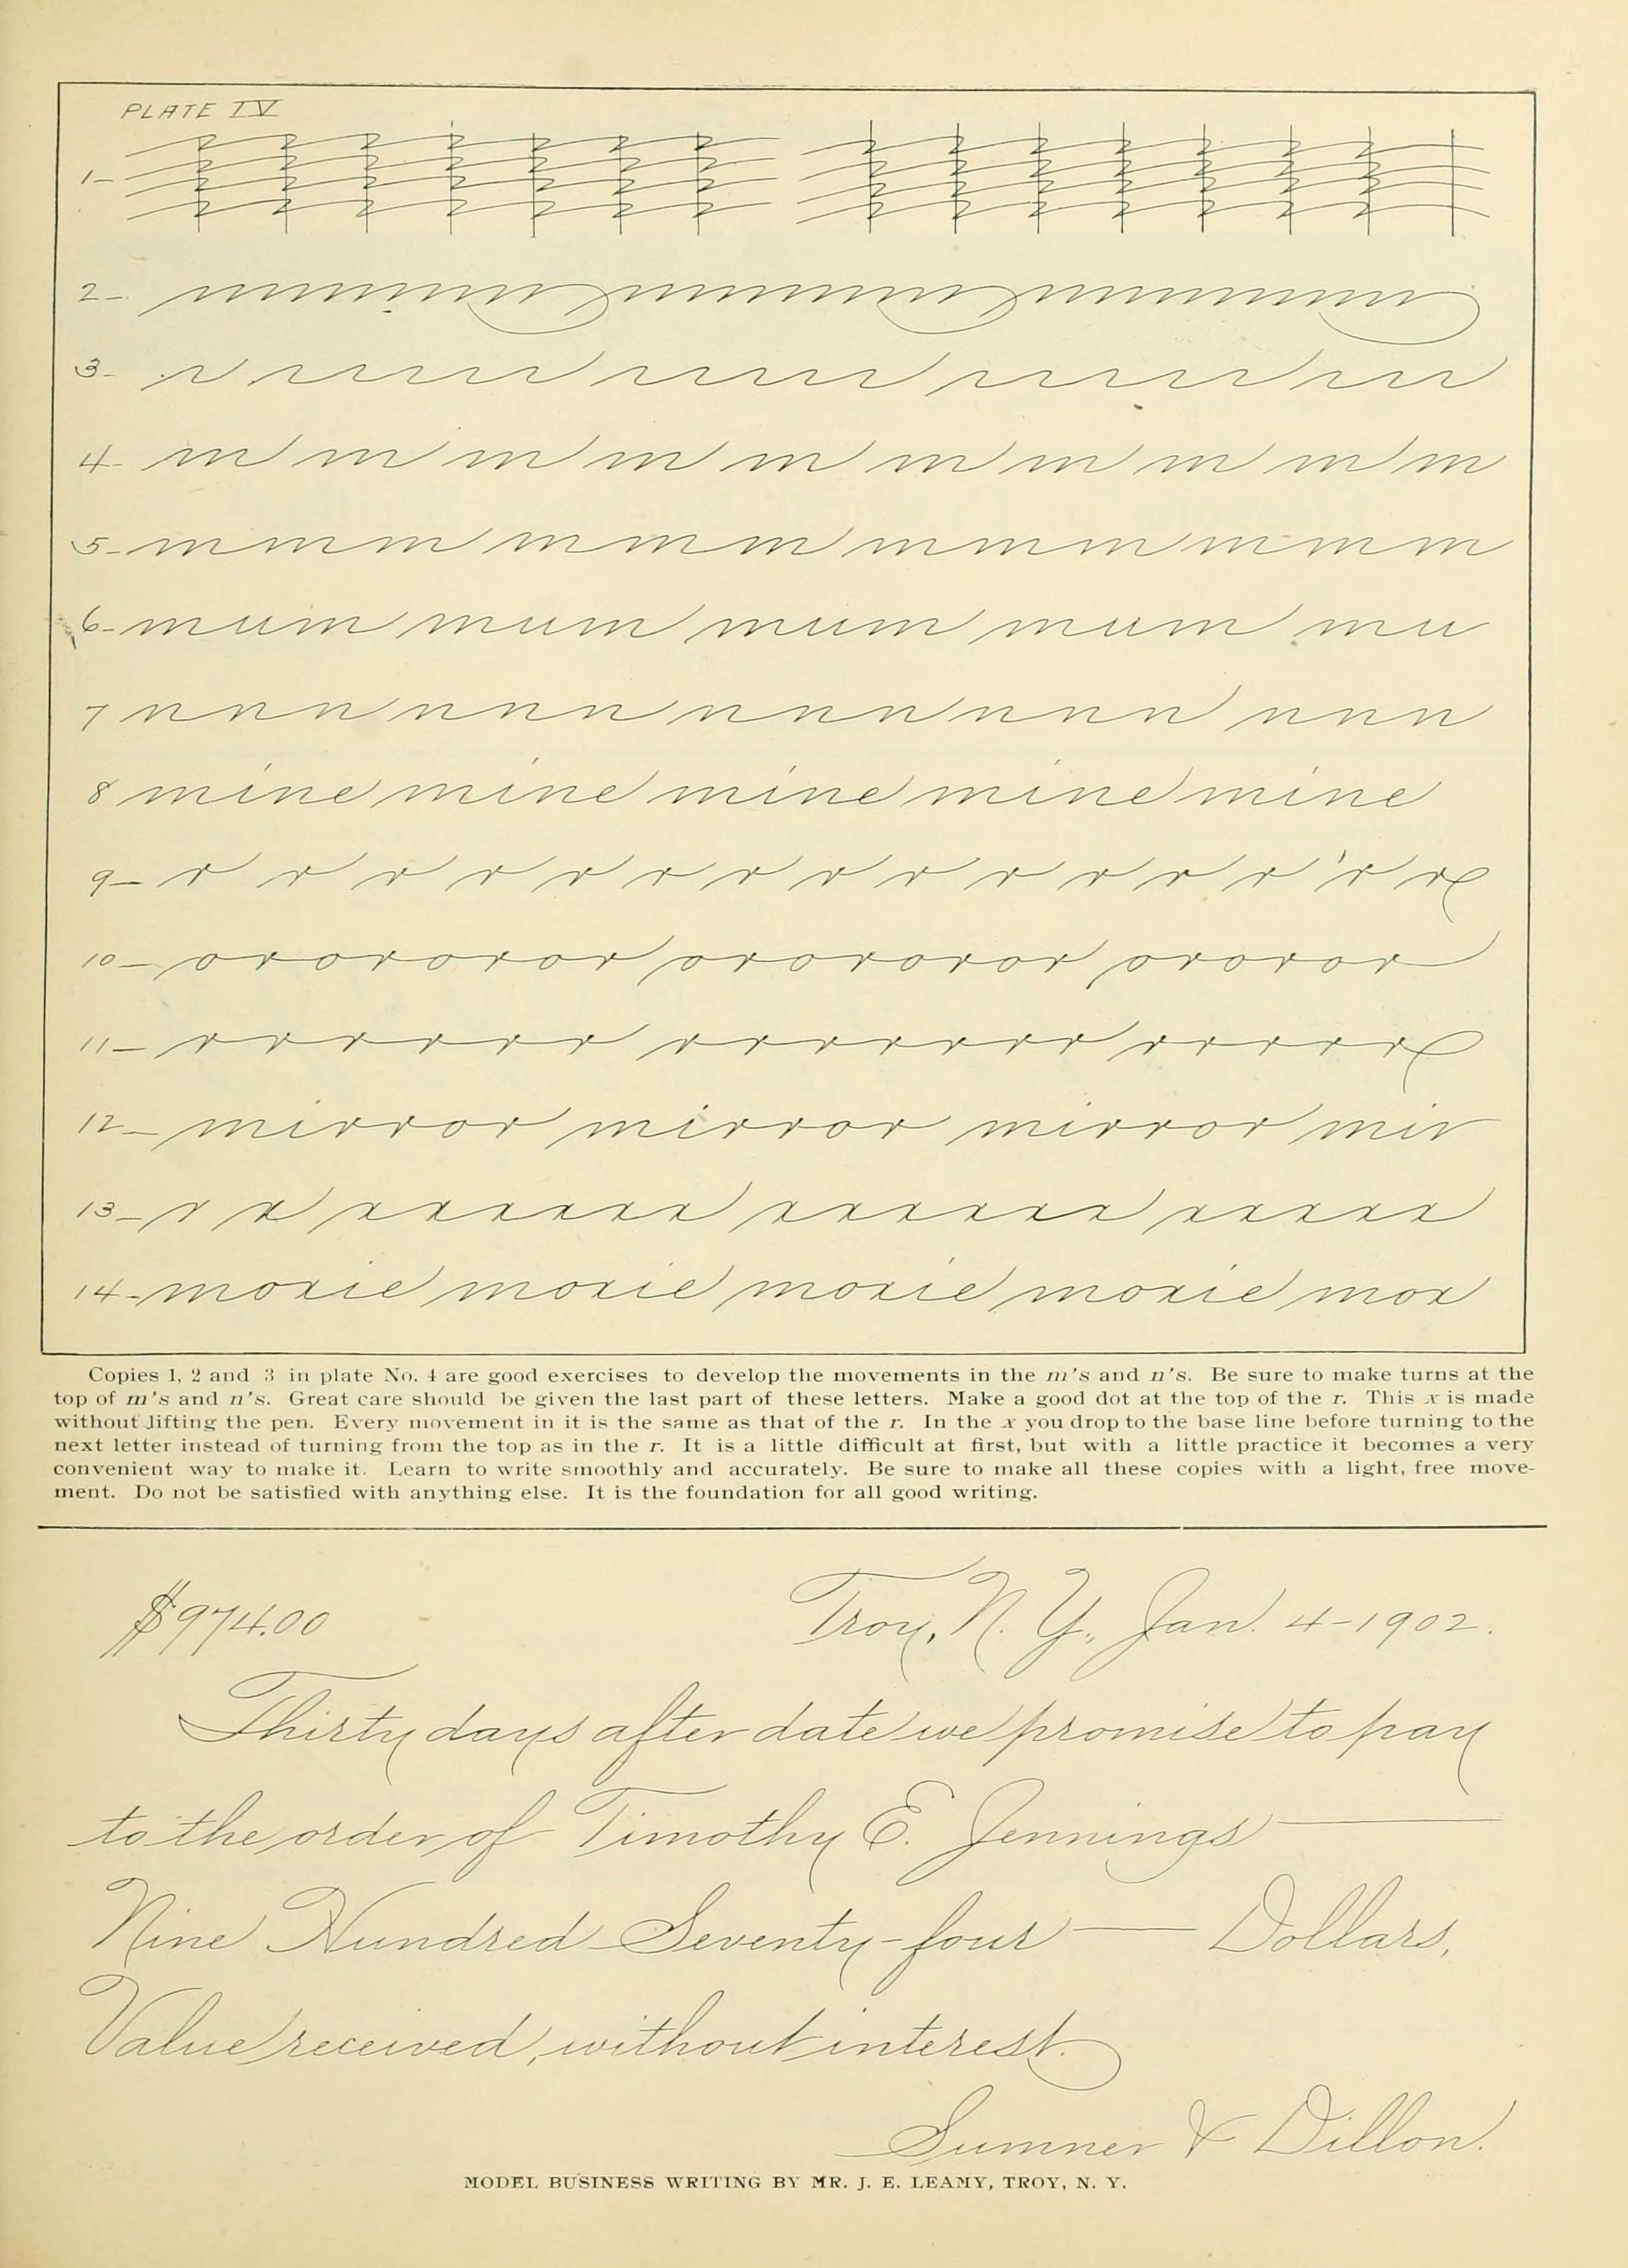 PLATE IV
1-
2-
3-
4- m m m m m m m m m m
5- m m m m m m m m m m m m
6- mum mum mum mum mu
7 n n n n n n n n n n n n n n n
8 mine mine mine mine mine
9- r r r r r r r r r r r r r r r
10- orororor orororor ororor
11- rrrrrr rrrrrrr rrrrr
12- mirror mirror mirror mir
13- r x xxxxxx xxxxxx xxxxx
14- moxie moxie moxie moxie mox
Copies 1, 2 and 3 in plate No. 4 are good exercises to develop the movements in the m's and n's. Be sure to make turns at the
top of m's and n's. Great care should be given the last part of these letters. Make a good dot at the top of the r. This x is made
without lifting the pen. Every movement in it is the same as that of the r. In the x you drop to the base line before turning to the
next letter instead of turning from the top as in the r. It is a little difficult at first, but with a little practice it becomes a very
convenient way to make it. Learn to write smoothly and accurately. Be sure to make all these copies with a light, free move-
ment. Do not be satisfied with anything else. It is the foundation for all good writing.
$974.00 Troy, N. Y., Jan. 4-1902.
Thirty days after date we promise to pay
to the order of Timothy E. Jennings
Nine Hundred Seventy-four — Dollars,
Value received, without interest.
Sumner & Dillon.
MODEL BUSINESS WRITING BY MR. J. E. LEAMY, TROY, N. Y.